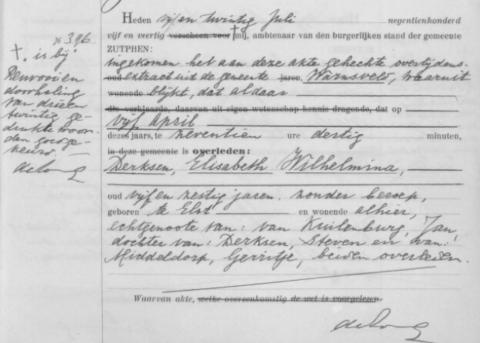 Heden vijf en twintig Juli negentienhonderd
vijf en veertig verscheen voor † mij, ambtenaar van den burgerlijken stand der gemeente
ZUTPHEN:
ingekomen het aan deze akte gehechte overlijdens-
oud extract uit de gemeente jaren, Warnsveld, waaruit
wonende blijkt, dat aldaar
die verklaarde, daarvan uit eigen wetenschap kennis dragende, dat op
vijf April
dezes jaars, te zeventien ure dertig minuten,
in deze gemeente is overleden:
Derksen, Elisabeth Wilhelmina,
oud vijf en zestig jaren, zonder beroep,
geboren te Elst en wonende alhier,
echtgenoote van: van Kuilenburg, Jan
dochter van: Derksen, Steven en van:
Middeldorp, Gerritje, beiden overleden.
Waarvan akte, welke overeenkomstig de wet is voorgelezen.
396
†. is bij
doorhaling
van drieën
twintig ge-
drukte woor-
den goedge-
keurd